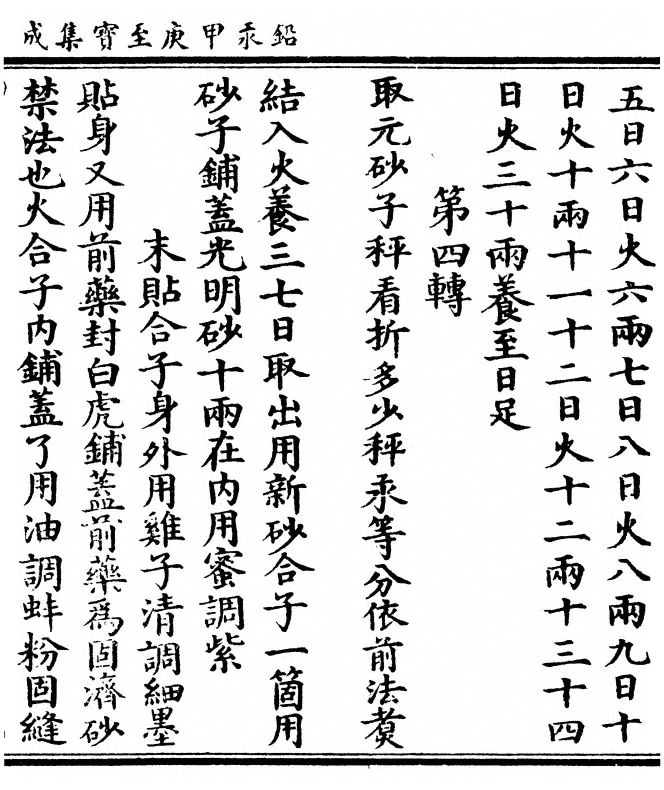 鉛汞甲庚至寶集成
五日六日火六兩七日八日火八兩九日十
日火十兩十一十二日火十二兩十三十四
日火三十兩養至日足
第四轉
取元砂子秤看折多少秤汞等分依前法煑
結入火養三七日取出用新砂合子一箇用
砂子鋪蓋光明砂十兩在內用蜜調紫
末貼合子身外用雞子清調細墨
貼身又用前藥封白虎鋪蓋前藥爲固濟砂
禁法也火合子內鋪蓋了用油調蚌粉固縫